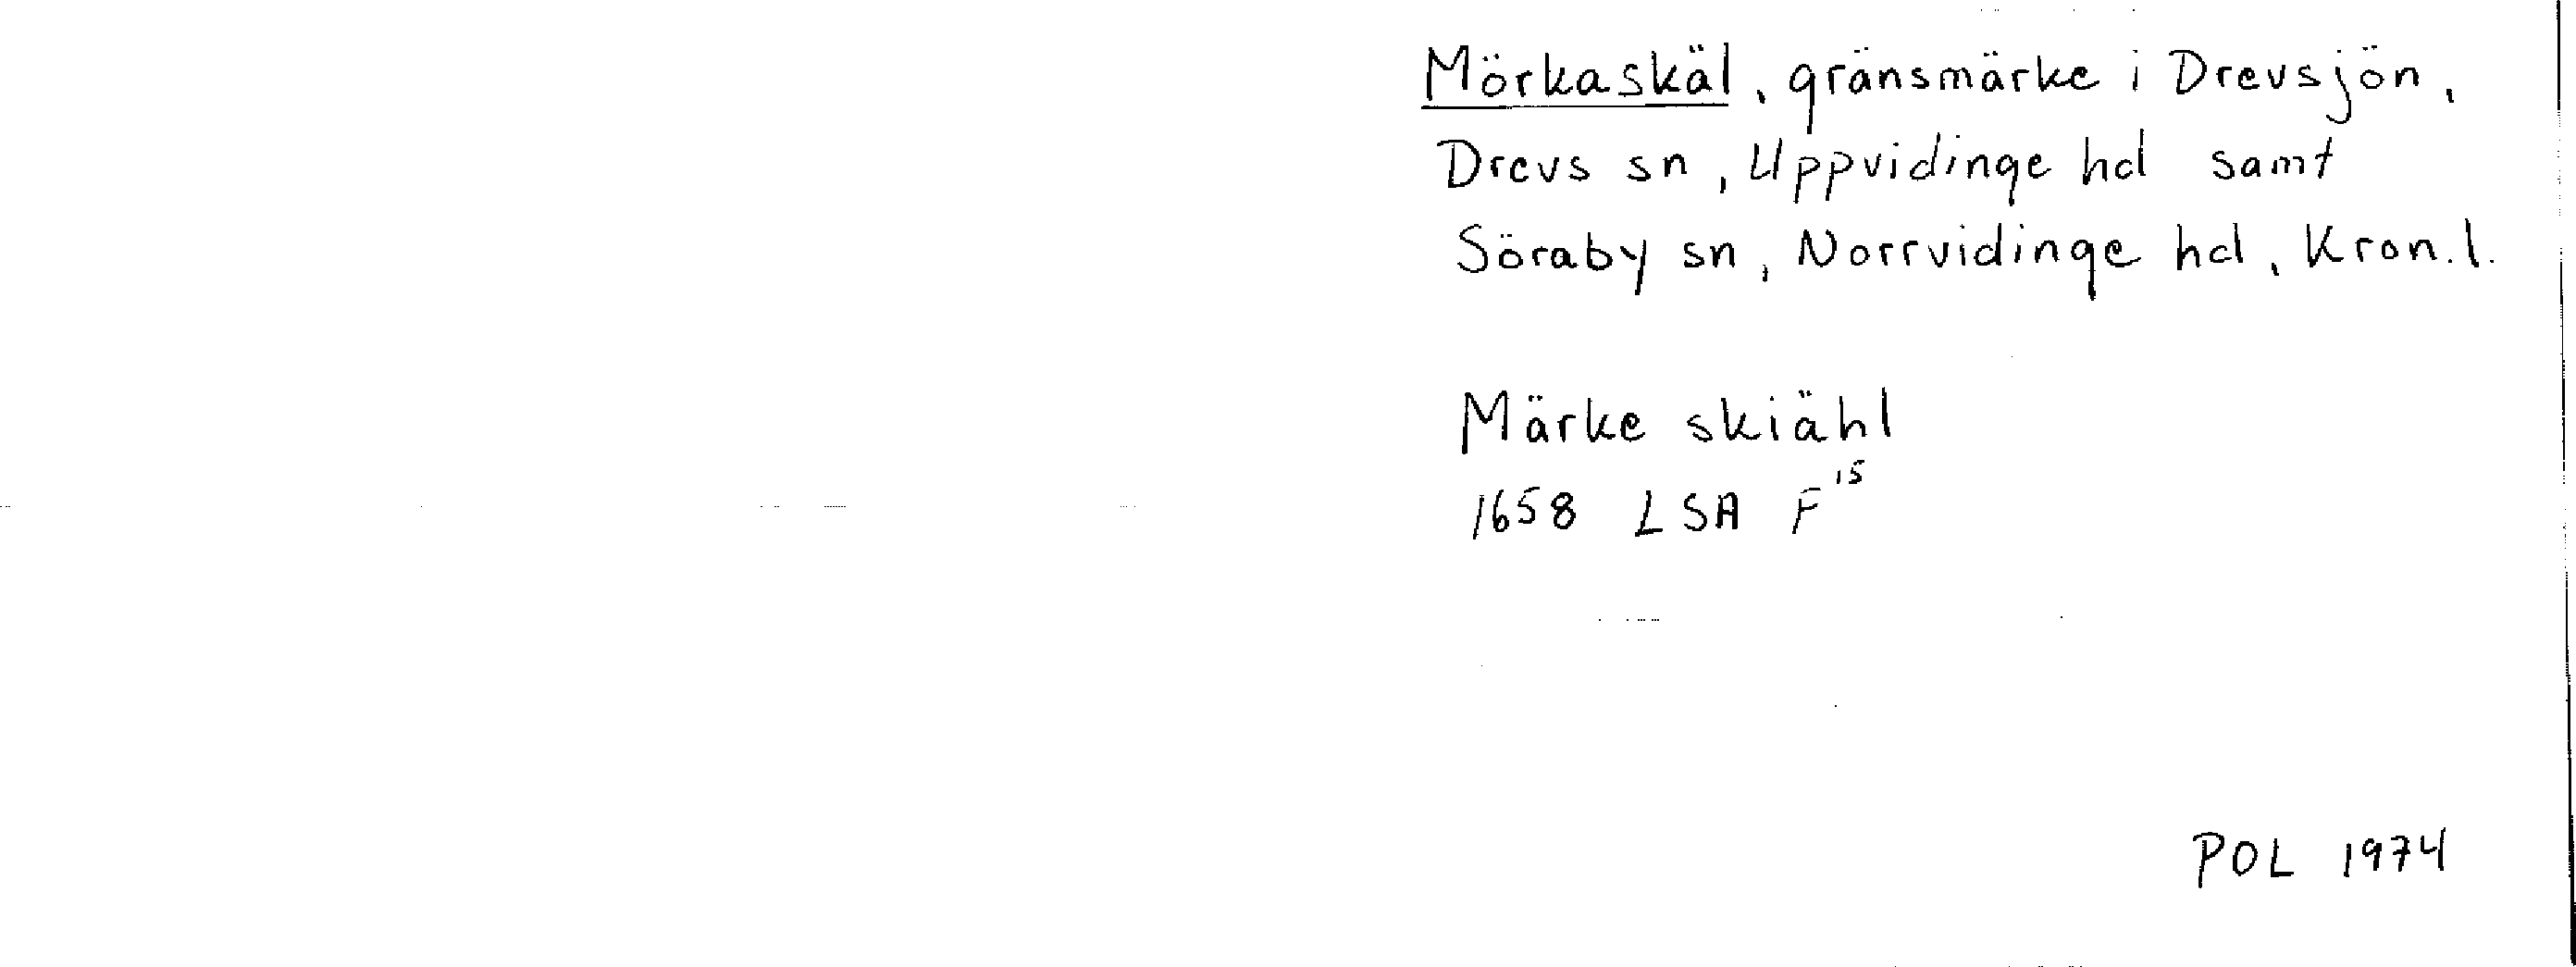 Mörkaskäl, gränsmärke i Drevsjön,
Drevs sn, Uppvidinge hd samt
Söraby sn, Norrvidinge hd, Kron.l.
Märke skiähl
1658 LSA F¹⁵
POL 1974